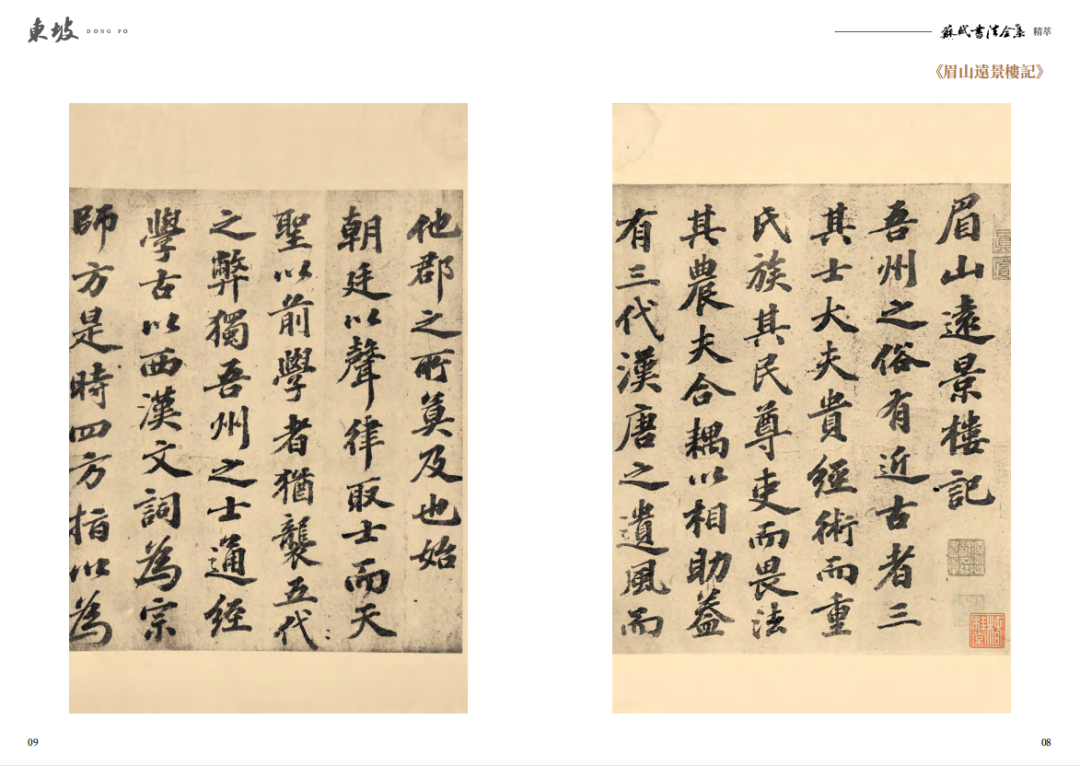 東坡 DONG PO
蘇軾書法全集 精萃
《眉山遠景樓記》
眉山遠景樓記
吾州之俗有近古者三
其士大夫貴經術而重
氏族其民尊吏而畏法
其農夫合耦以相助蓋
有三代漢唐之遺風而
他郡之所莫及也始
朝廷以聲律取士而天
聖以前學者猶襲五代
之弊獨吾州之士通經
學古以西漢文詞為宗
師方是時四方指以為
09
08